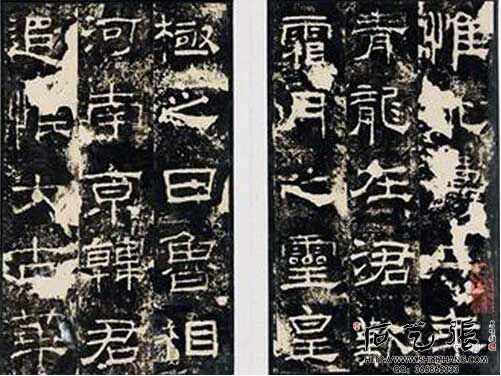 惟
青龍在涒
霜月之靈皇
極之日魯相
河南京韓君
追惟大古華